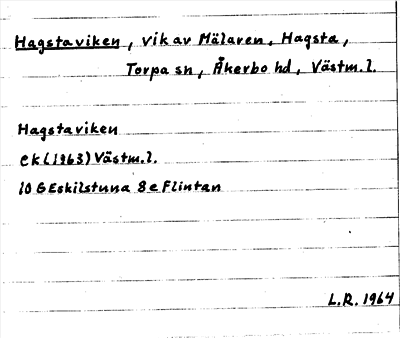 Hagstaviken, vik av Mälaren, Hagsta,
Torpa sn, Åkerbo hd, Västm. l.
Hagstaviken
ek (1963) Västm. l.
10 G Eskilstuna 8 e Flintan
L.R. 1964